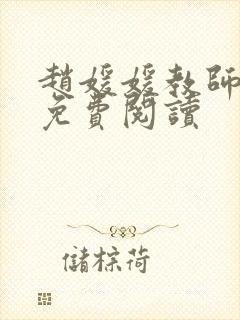 趙媛媛教師
免費閱讀
儲棕荷